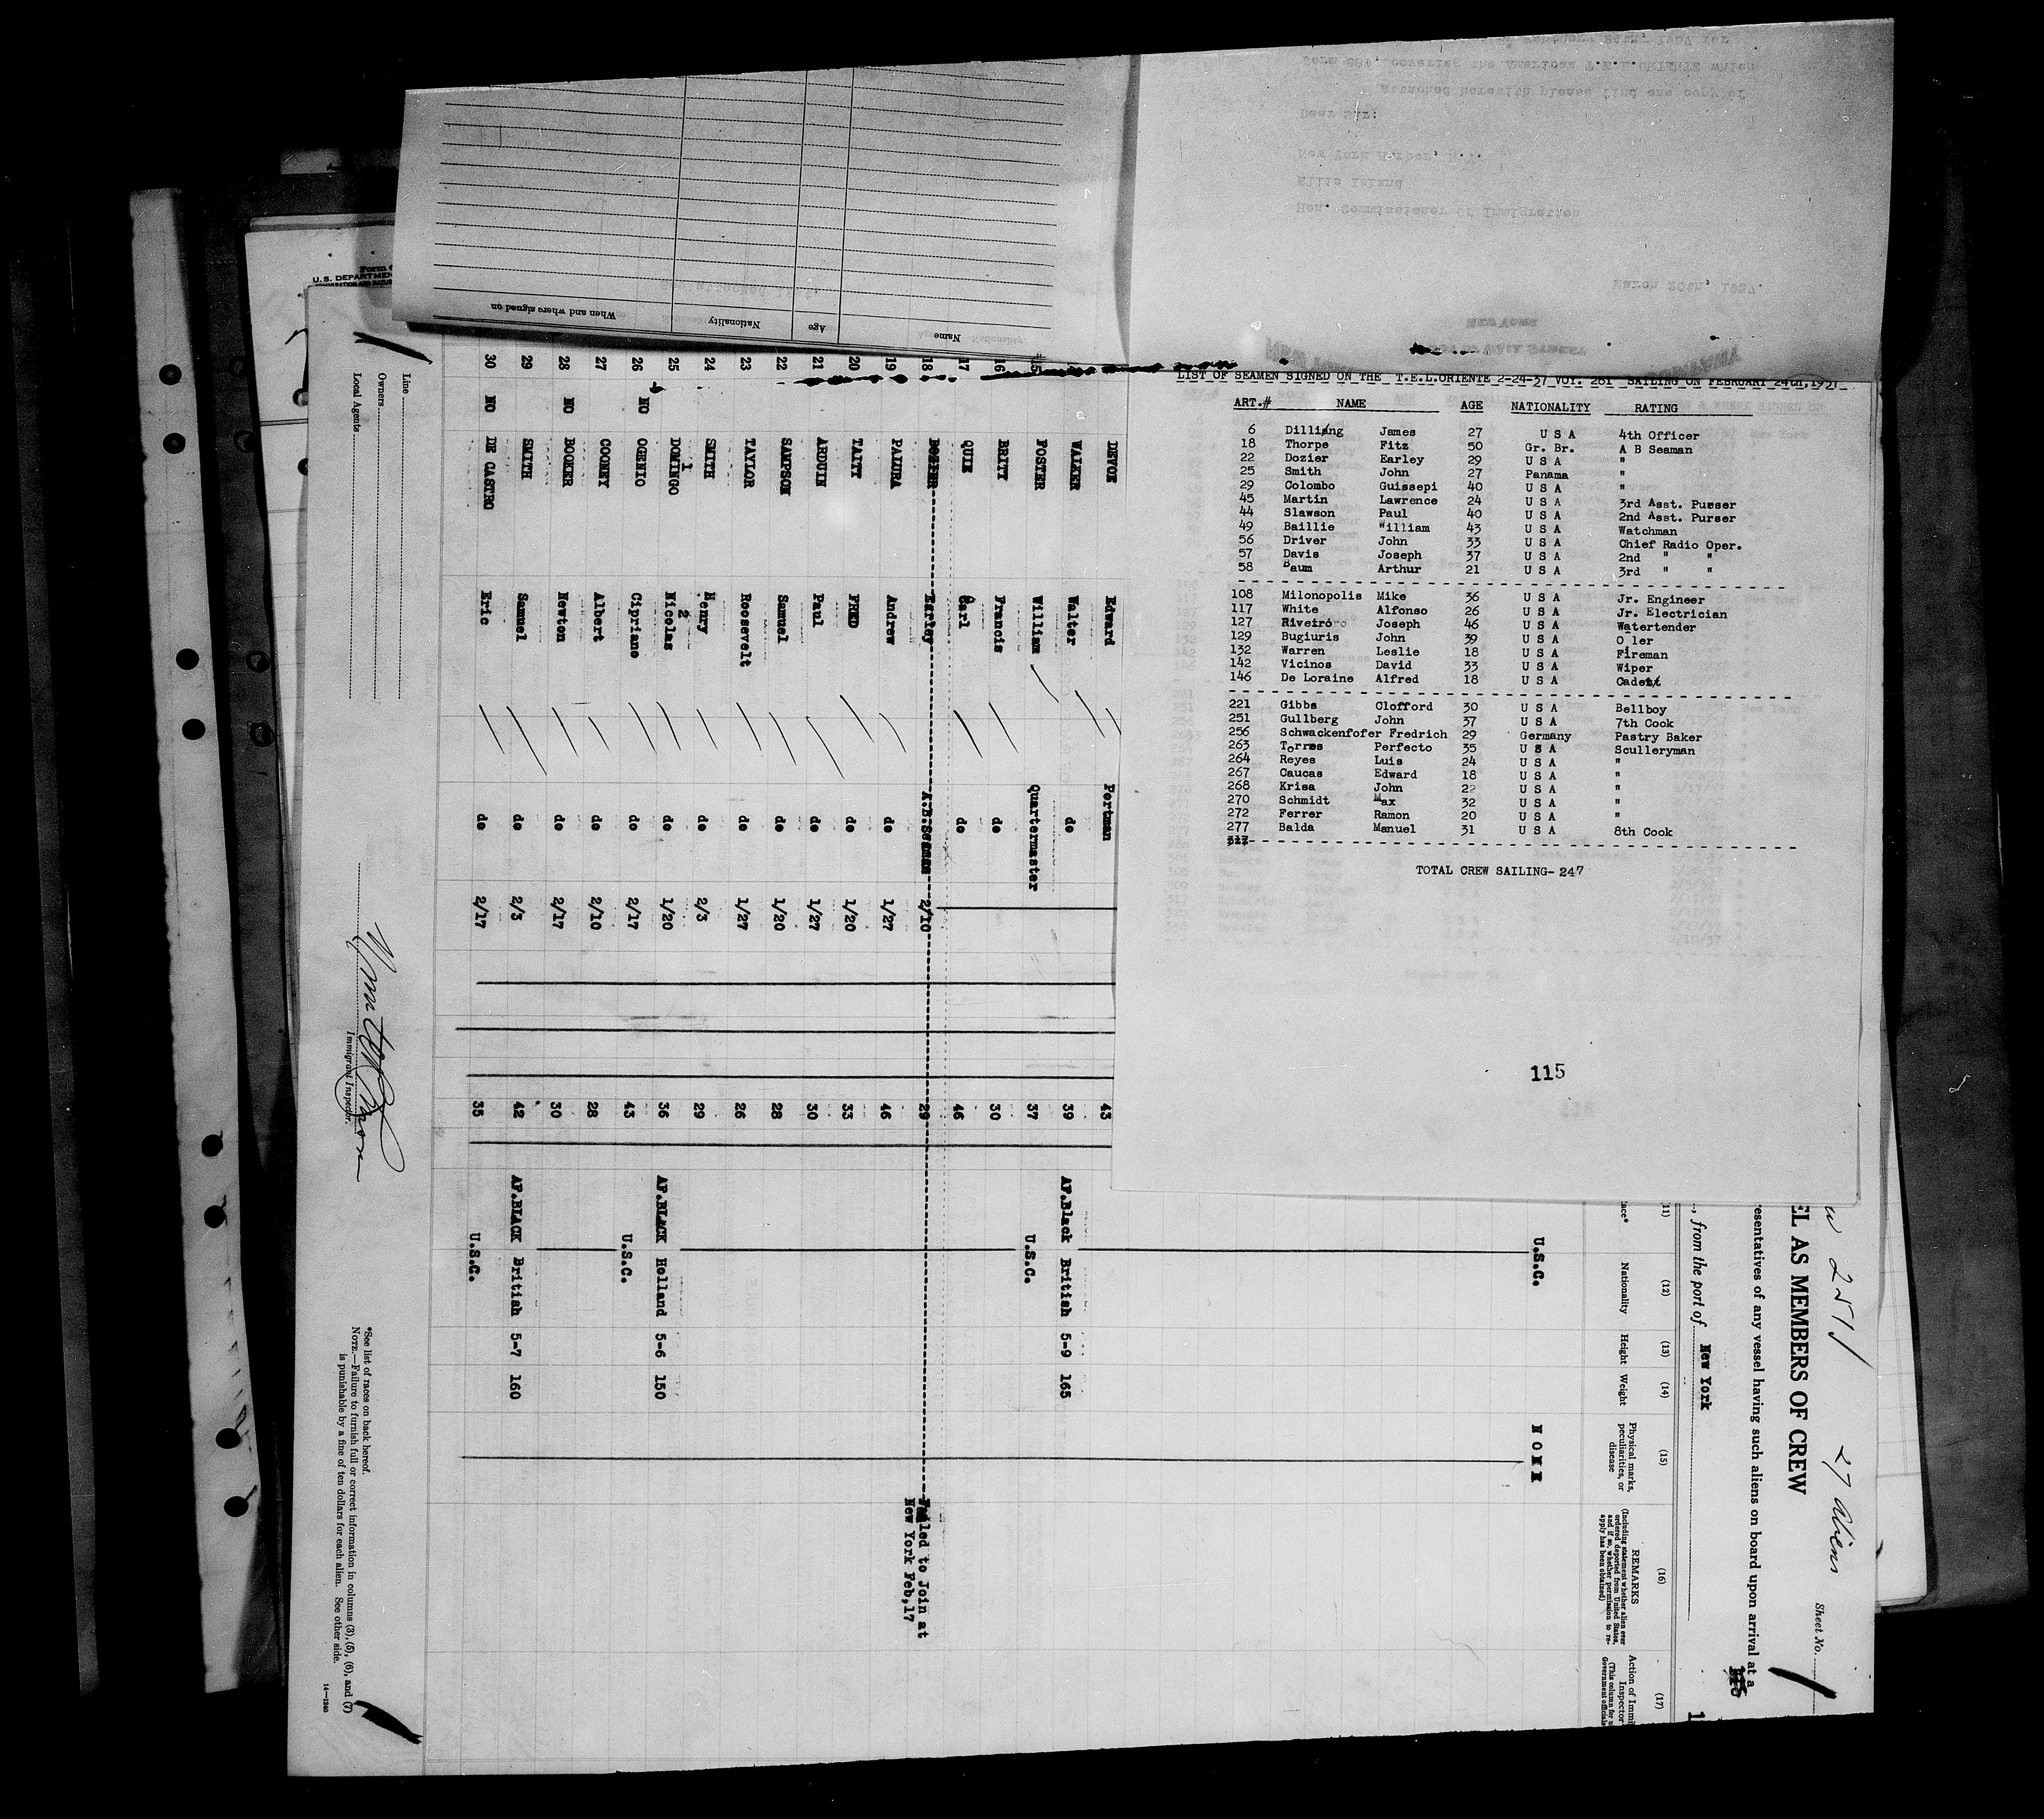 LIST OF SEAMEN SIGNED ON THE T.E.L.ORIENTE 2-24-37 VOY. 281 SAILING ON FEBRUARY 24th,1937
ART.# NAME AGE NATIONALITY RATING
6 Dilling James 27 U S A 4th Officer
18 Thorpe Fitz 50 Gr. Br. A B Seaman
22 Dozier Earley 29 U S A "
25 Smith John 27 Panama "
29 Colombo Guissepi 40 U S A "
45 Martin Lawrence 24 U S A 3rd Asst. Purser
44 Slawson Paul 40 U S A 2nd Asst. Purser
49 Baillie William 43 U S A Watchman
56 Driver John 33 U S A Chief Radio Oper.
57 Davis Joseph 37 U S A 2nd " "
58 Baum Arthur 21 U S A 3rd " "
108 Milonopolis Mike 36 U S A Jr. Engineer
117 White Alfonso 26 U S A Jr. Electrician
127 Riveiro Joseph 46 U S A Watertender
129 Bugiuris John 39 U S A Oiler
132 Warren Leslie 18 U S A Fireman
142 Vicinos David 33 U S A Wiper
146 De Loraine Alfred 18 U S A Cadet
221 Gibbs Clofford 30 U S A Bellboy
251 Gullberg John 37 U S A 7th Cook
256 Schwackenfofer Fredrich 29 Germany Pastry Baker
263 Torres Perfecto 35 U S A Sculleryman
264 Reyes Luis 24 U S A "
267 Caucas Edward 18 U S A "
268 Krisa John 22 U S A "
270 Schmidt Max 32 U S A "
272 Ferrer Ramon 20 U S A "
277 Balda Manuel 31 U S A 8th Cook
317
TOTAL CREW SAILING- 247
115
Name Age Nationality When and where signed on
March 20th, 1937.
Hon. Commissioner of Immigration
Ellis Island
New York Harbor, N.Y.
Dear Sir:
Attached herewith please find one copy of
Form 689, covering the American T.E.L.ORIENTE which
27 Aliens
Sheet No.
EL AS MEMBERS OF CREW
resentatives of any vessel having such aliens on board upon arrival at a
, from the port of New York
(12) (13) (14) (15) (16) (17)
Nationality Height Weight Physical marks, peculiarities, or disease REMARKS
(Including statement whether alien ever ordered deported from United States, and if so, whether permission to re-apply has been obtained)
U.S.C. NONE
DEVOE Edward Portman 43
WALKER Walter do 39 AF.Black British 5-9 165
15 FOSTER William Quartermaster 37 U.S.C.
16 BRITT Francis do 30
17 QUIE Carl do 46
18 DOZIER Earley A.B.Seaman 2/10 29 Failed to Join at
New York Feb,17
19 PALURA Andrew do 1/27 46
20 TAITT FRED do 1/20 33
21 ARDUIN Paul do 1/27 30
22 SAMPSON Samuel do 1/20 28
23 TAYLOR Roosevelt do 1/27 26
24 SMITH Henry do 2/3 29
25 DOMINGO 1 Nicolas 2 do 1/20 36 AF.BLACK Holland 5-6 150
26 NO OGENIO Cipriano do 2/17 43 U.S.C.
27 COONEY Albert do 2/10 28
28 NO BOOKER Newton do 2/17 30
29 SMITH Samuel do 2/3 42 AF.BLACK British 5-7 160
30 NO DE CASTRO Eric do 2/17 35 U.S.C.
Line
Owners
Local Agents
Immigrant Inspector.
*See list of races on back hereof.
NOTE.—Failure to furnish full or correct information in columns (3), (5), (6), and (7)
is punishable by a fine of ten dollars for each alien. See other side.
14—1240
U. S. DEPARTMEN